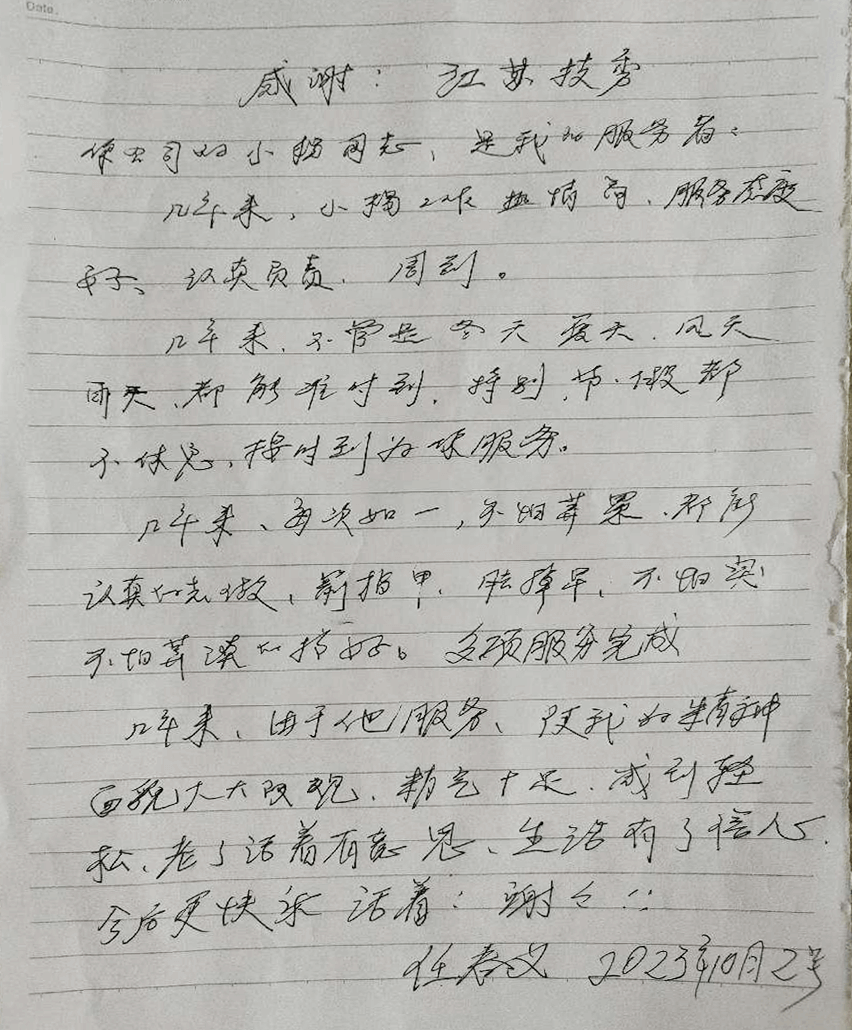 Date.
感谢：江苏技秀
你公司的小杨同志，是我的服务者：
几年来，小杨工作热情高、服务态度
好、认真负责、周到。
几年来，不管是冬天夏天、风天
雨天、都能准时到，特别，节、假都
不休息，按时到为保服务。
几年来、每次如一，不怕苦累、都能
认真的去做、剪指甲、
不怕苦 好。多项服务完成
几年来、由于他服务、使我的精神
面貌大大改观、精气十足、感到轻
松、老了活着有意思、生活有了信心
今后更快乐活着：谢々：：
任春义 2023年10月2号